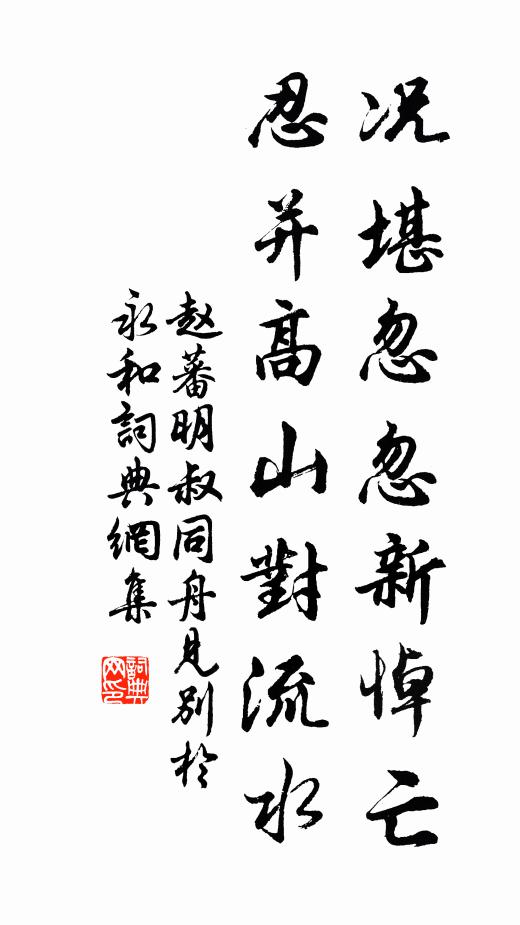 况堪忽忽新悼亡
忍并高山對流水
赵蕃明叔同舟見别於
永和詞典網集
詞典网印